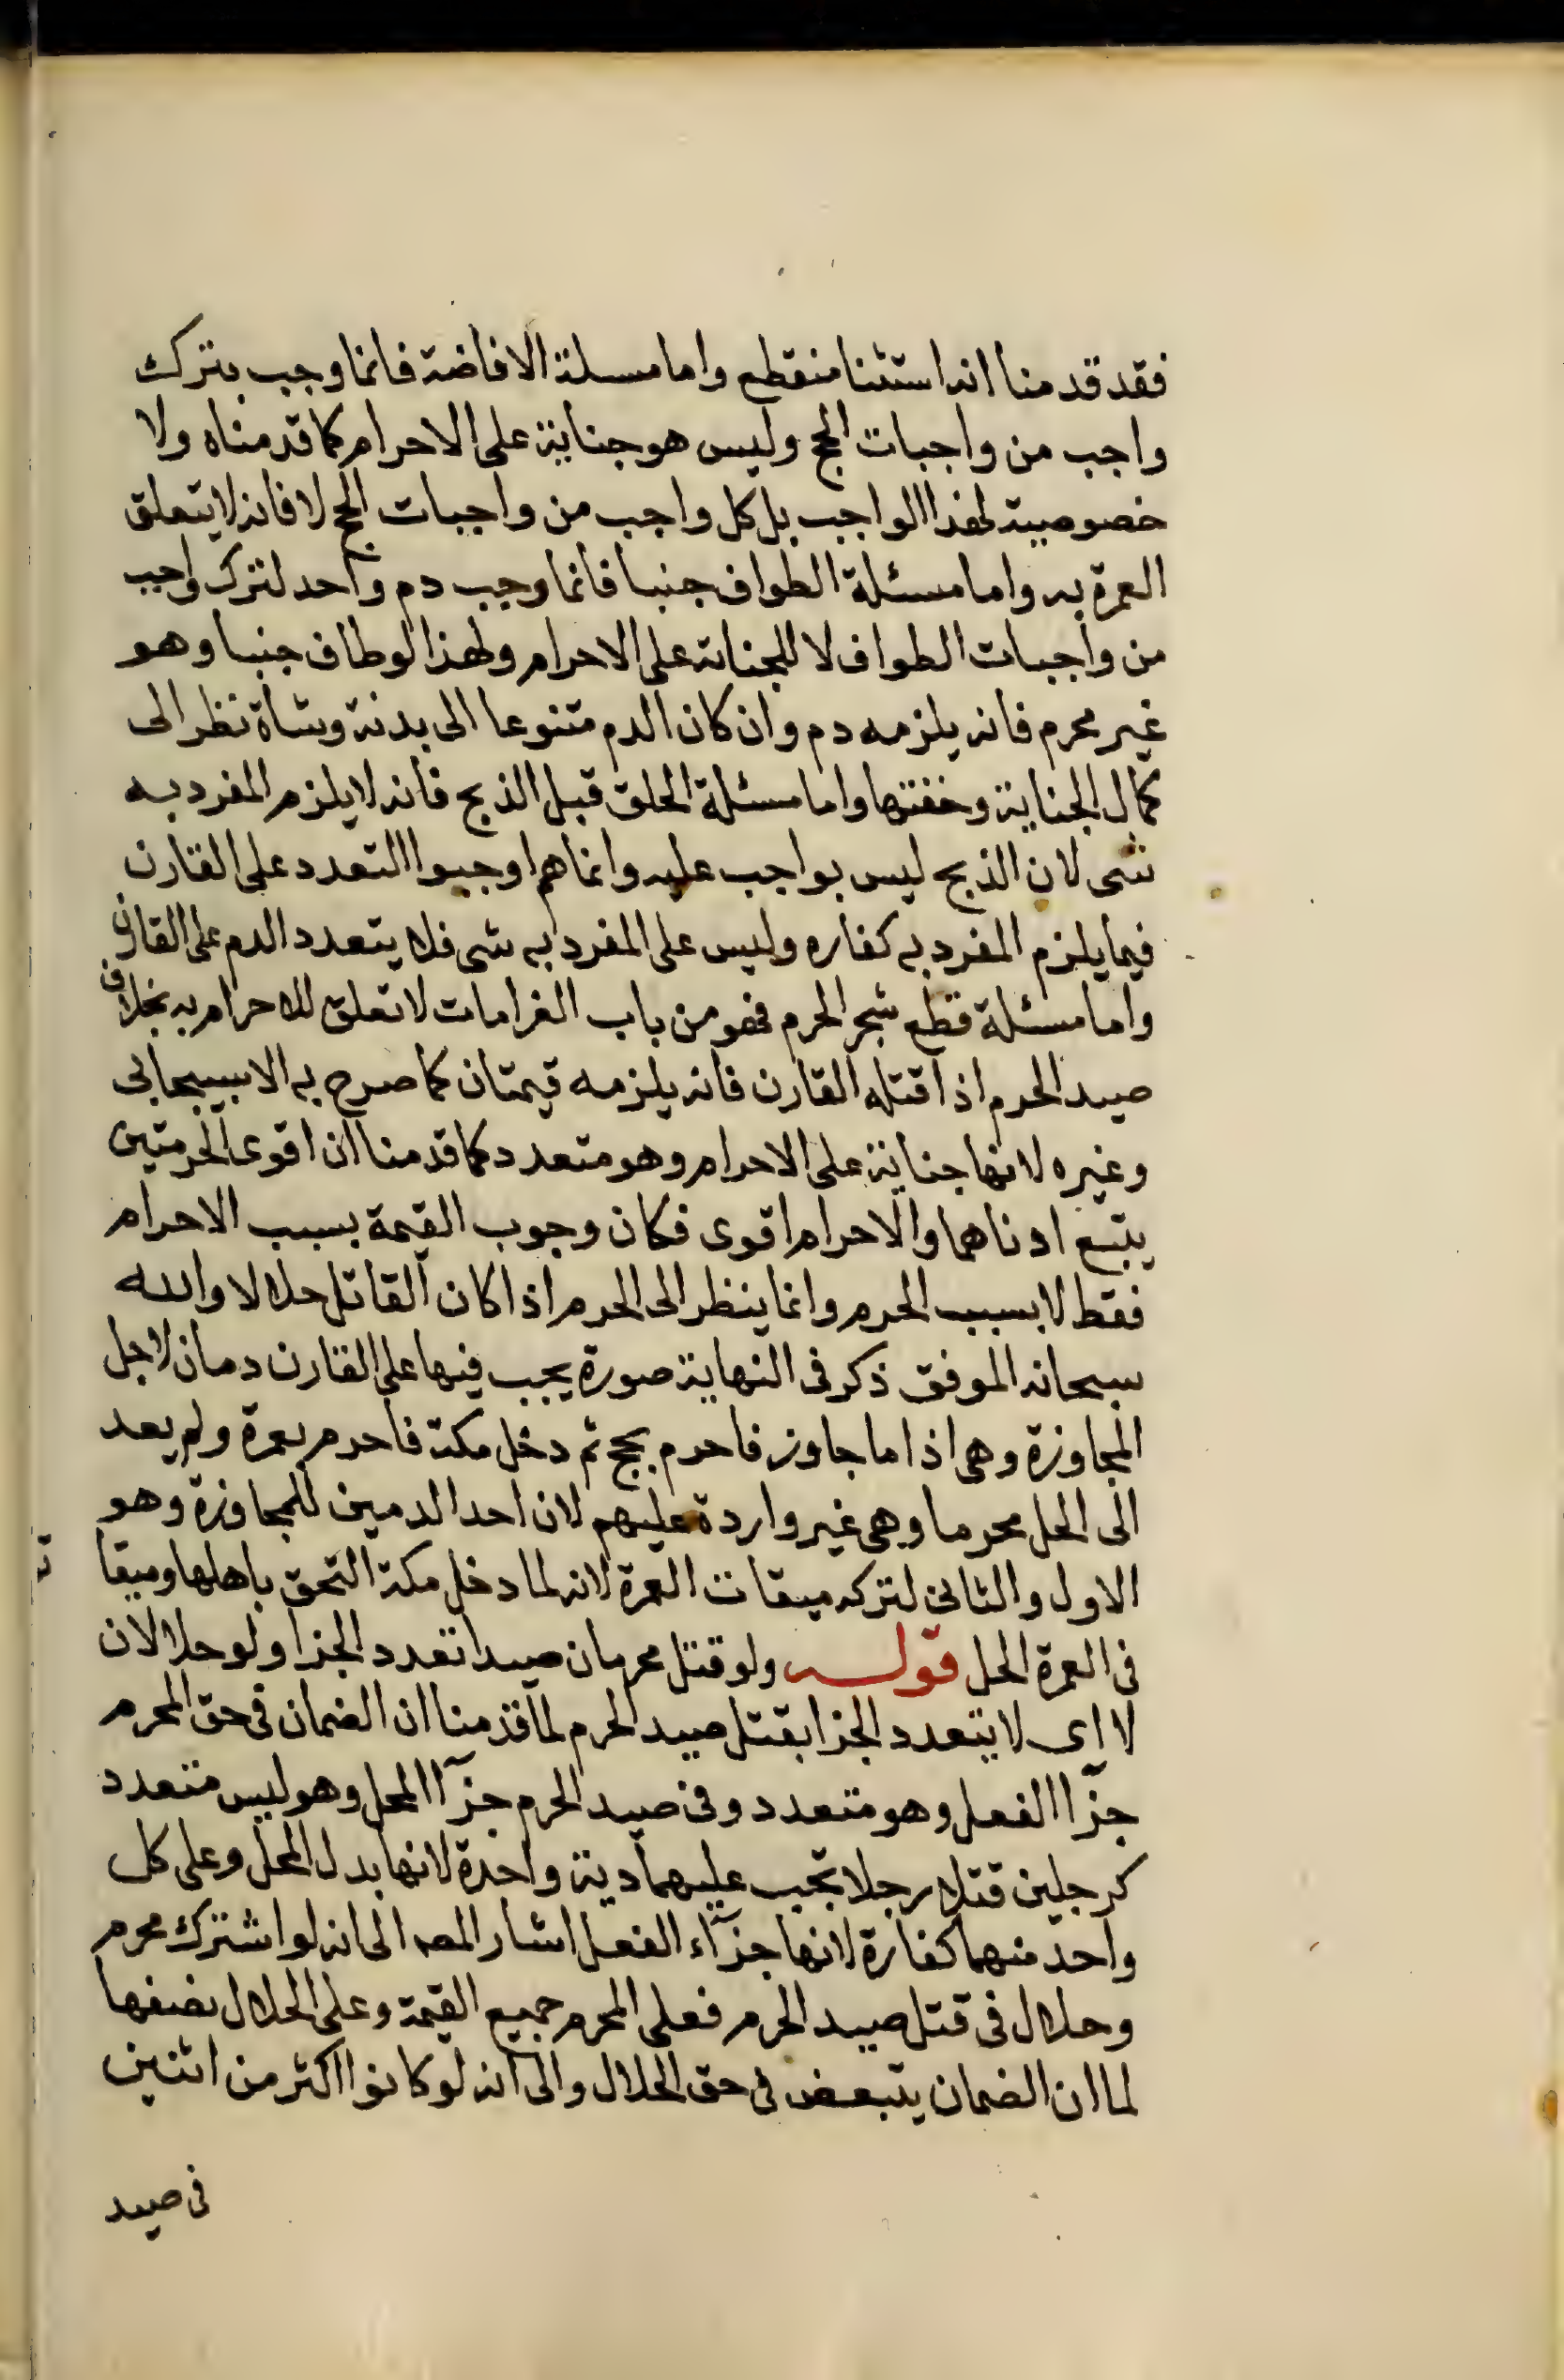 فقد قدمنا انه استثنا منقطع واما مسلة الافاضة فانما وجب بترك
واجب من واجبات الحج وليس هو جناية على الاحرام كما قدمناه ولا
خصوصية لهذا الواجب بل كل واجب من واجبات الحج لا فانه لا يتعلق
العمرة به واما مسئلة الطواف جنبا فانما وجب دم واحد لترك واجب
من واجبات الطواف لا للجناية على الاحرام ولهذا لو طاف جنبا وهو
غير محرم فانه يلزمه دم وان كان الدم متنوعا الى بدنة وشاة نظر الى
كمال الجناية وخفتها واما مسئلة الحلق قبل الذبح فانه لا يلزم المفرد به
شى لان الذبح ليس بواجب عليه وانما هم اوجبوا التعدد على القارن
فيما يلزم المفرد به كفاره وليس على المفرد به شى فلا يتعدد الدم على القارن
واما مسئلة قطع شجر الحرم فهو من باب الغرامات لا تعلق للاحرام به بخلاف
صيد الحرم اذا قتله القارن فانه يلزمه قيمتان كما صرح به الاسبيجابى
وغيره لانها جناية على الاحرام وهو متعدد كما قدمنا ان اقوى الحرمتين
يتبع ادناهما والاحرام اقوى فكان وجوب القيمة بسبب الاحرام
فقط لا بسبب الحرم وانما ينظر الى الحرم اذا كان القاتل حلالا والله
سبحانه الموفق ذكر فى النهاية صورة يجب فيها على القارن دمان لاجل
المجاوزة وهى اذا ما جاوز فاحرم بحج ثم دخل مكة فاحرم بعمرة ولم يعد
الى الحل محرما وهى غير واردة عليهم لان احد الدمين للمجاوزة وهو
الاول والثانى لتركه ميقات العمرة لانه لما دخل مكة التحق باهلها وميقا
فى العمرة الحل قوله ولو قتل محرمان صيدا تعدد الجزا ولو حلالان
لا اى لا يتعدد الجزا بقتل صيد الحرم لما قدمنا ان الضمان فى حق المحرم
جزآ الفعل وهو متعدد وفى صيد الحرم جزآ المحل وهو ليس متعدد
كرجلين قتلا رجلا تجب عليهما دية واحدة لانها بدل المحل وعلى كل
واحد منهما كفارة لانها جزآء الفعل اشار المصـ الى انه لو اشترك محرم
وحلال فى قتل صيد الحرم فعلى المحرم جميع القيمة وعلى الحلال نصفها
لما ان الضمان يتبعض فى حق الحلال والى انه لو كانوا اكثر من اثنين
فى صيد